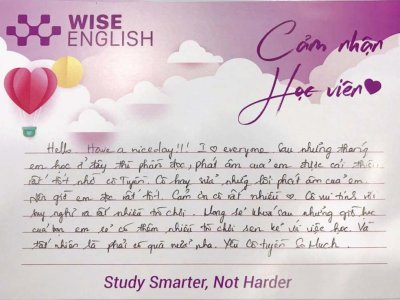 WISE
ENGLISH
Cảm nhận
Học viên
Hello Have a nice day!!! I ♡ everyone. Sau những tháng
em học ở đây thì phần đọc, phát âm của em được cải thiện
rất tốt nhờ cô Tuyền. Cô hay sửa những lỗi phát âm của em.
nên giờ em đọc rất tốt. Cảm ơn cô rất nhiều ♡. Cô vui tính với
suy nghĩ ra rất nhiều trò chơi. Mong sẽ khóa sau những giờ học
của bọn em sẽ có thêm nhiều trò chơi xen kẽ và việc học. Và
tất nhiên là phải có quà nữa nha. Yêu cô tuyền So Much.
Study Smarter, Not Harder